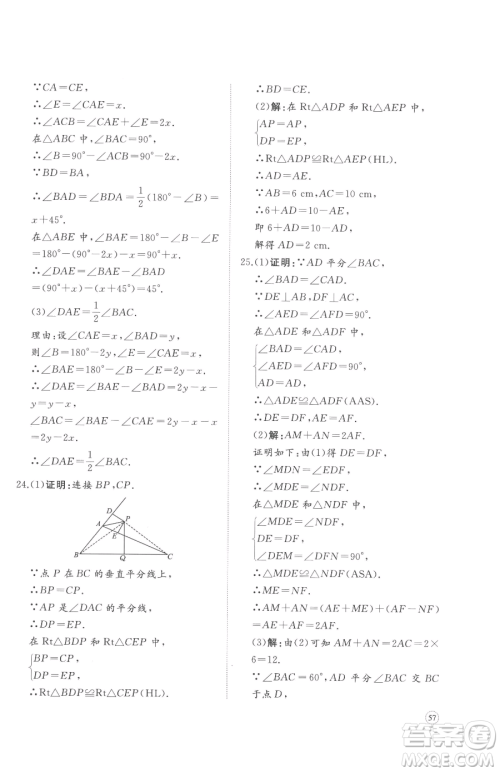 ∵CA=CE,
∴∠E=∠CAE=x.
∴∠ACB=∠CAE+∠E=2x.
在△ABC中,∠BAC=90°,
∴∠B=90°-∠ACB=90°-2x.
∵BD=BA,
∴∠BAD=∠BDA=1/2(180°-∠B)=
x+45°.
在△ABE中,∠BAE=180°-∠B-∠E
=180°-(90°-2x)-x=90°+x.
∴∠DAE=∠BAE-∠BAD
=(90°+x)-(x+45°)=45°.
(3)∠DAE=1/2∠BAC.
理由:设∠CAE=x,∠BAD=y,
则∠B=180°-2y,∠E=∠CAE=x.
∴∠BAE=180°-∠B-∠E=2y-x.
∴∠DAE=∠BAE-∠BAD=2y-x-y
=y-x,
∠BAC=∠BAE-∠CAE=2y-x-x=
2y-2x.
∴∠DAE=1/2∠BAC.
24.(1)证明:连接BP,CP.
D
A
P
E
B
Q
C
∵点P在BC的垂直平分线上,
∴BP=CP.
∵AP是∠DAC的平分线,
∴DP=EP.
在Rt△BDP和Rt△CEP中,
{BP=CP,
DP=EP,
∴Rt△BDP≌Rt△CEP(HL).
∴BD=CE.
(2)解:在Rt△ADP和Rt△AEP中,
{AP=AP,
DP=EP,
∴Rt△ADP≌Rt△AEP(HL).
∴AD=AE.
∵AB=6 cm,AC=10 cm,
∴6+AD=10-AE,
即6+AD=10-AD,
解得AD=2 cm.
25.(1)证明:∵AD平分∠BAC,
∴∠BAD=∠CAD.
∵DE⊥AB,DF⊥AC,
∴∠AED=∠AFD=90°.
在△ADE和△ADF中,
{∠BAD=∠CAD,
∠AED=∠AFD,
AD=AD,
∴△ADE≌△ADF(AAS).
∴DE=DF,AE=AF.
(2)解:AM+AN=2AF.
证明如下:由(1)得DE=DF,
∵∠MDN=∠EDF,
∴∠MDE=∠NDF.
在△MDE和△NDF中,
{∠MDE=∠NDF,
DE=DF,
∠DEM=∠DFN=90°,
∴△MDE≌△NDF(ASA).
∴ME=NF.
∴AM+AN=AE+ME+(AF-NF)=
AE+AF=2AF.
(3)解:由(2)可知AM+AN=2AF=2×
6=12.
∵∠BAC=60°,AD平分∠BAC交BC
于点D,
57